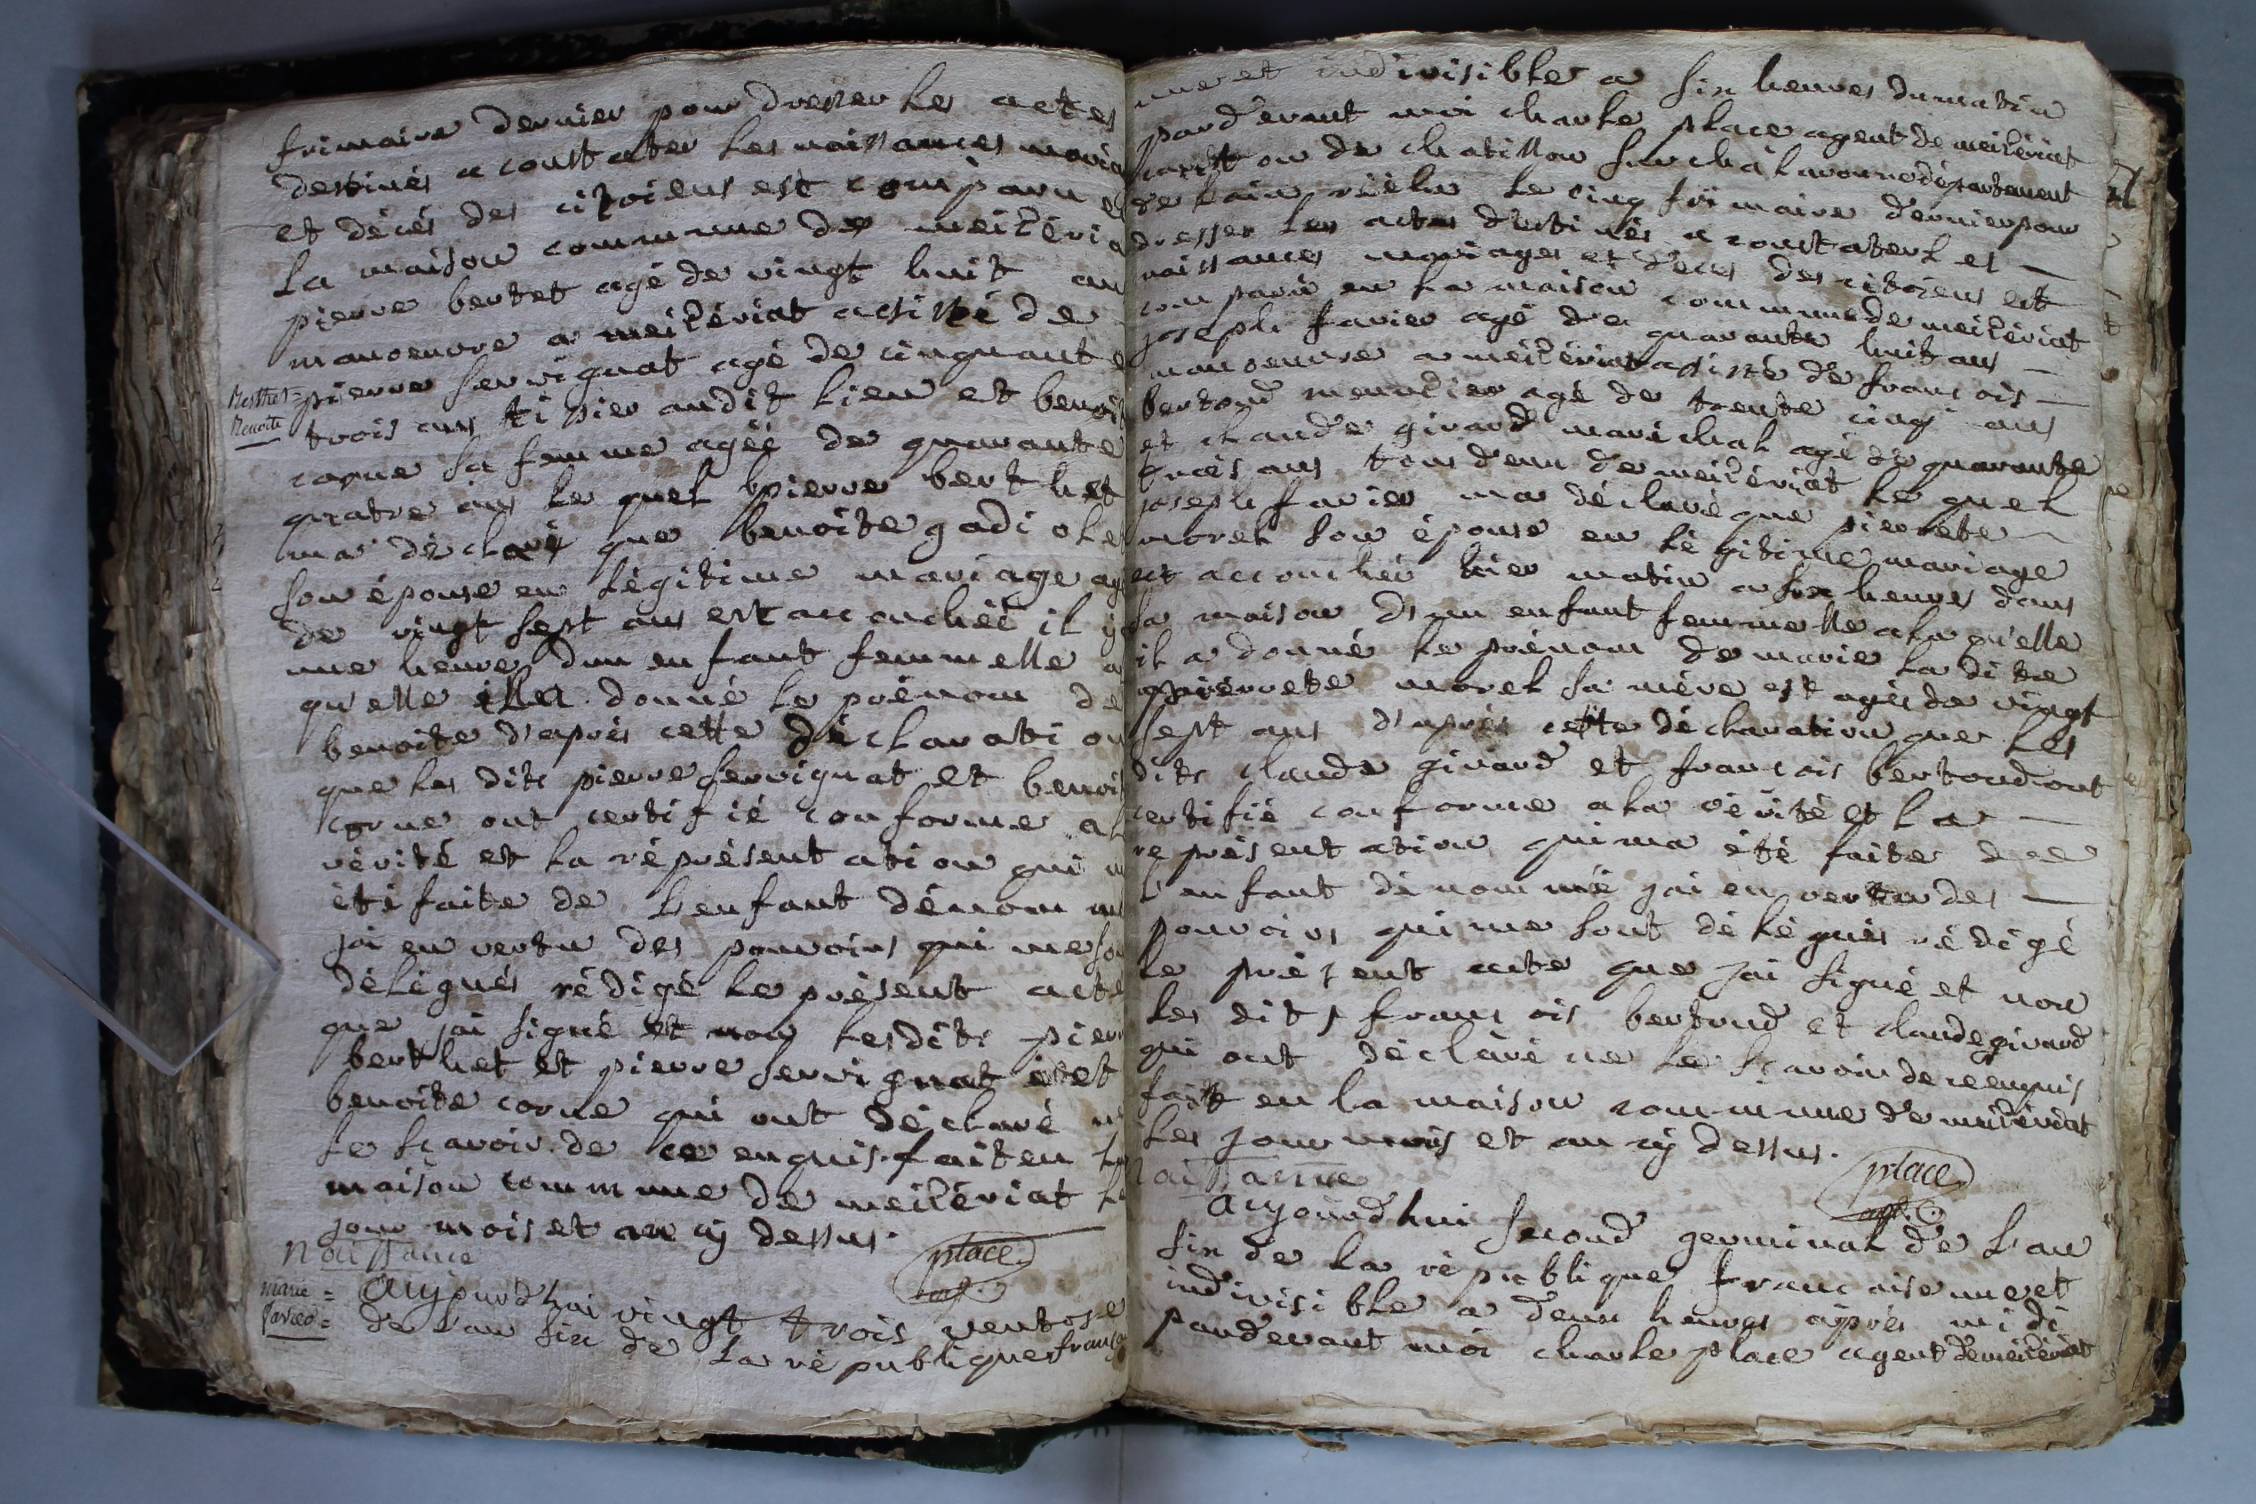 frimaire dernier pour dresser les actes
destinés a constater les naissances maria
et décés des citoiens est comparu e
la maison commune de meiléria
pierre bertet agé de vingt huit an
manoeuvre a meilériat assisté de
pierre servignat agé de cinquante
Berthet =
Benoite
trois ans tipier audit lieu et benoit
corne sa femme agéé de quarante
quatre ans le quel pierre berthet
ma déclaré que benoite gadiole
son épouse en légitime mariage ag
de vingt sept ans est accouchéé il y
une heure dun enfant femmelle a
qu'elle illa donné le prénom de
benoite d'aprés cette déclaration
que les dits pierre servignat et benoi
corne ont certifié conforme al
vérité et la réprésentation qui m
été faite de l'enfant dénomm
jai en vertu des pouvoirs qui me so
délégués rédigé le présent acte
que jai signé et non lesdits pierr
berthet et pierre servignat et
benoite corne qui ont déclaré n
le scavoir de ce enquis. fait en la
maison commune de meilériat le
jour mois et an cy dessus.
place
agt.
Naissance
marie =
favier =
Aujourd'hui vingt trois ventose
de l'an six de la république franca
une et indivisible a six heures du matin
pardevant moi charle place agent de meilériat
canton de chatillon sur chalaronne département
de lain réélu le cinq frimaire dernier pour
dresser les actes destinés a constater les —
naissances mariages et déces des citoiens est
comparu en la maison commune de meilériat
joseph favier agé de quarante huit ans —
manoeuvre a meilériat assisté de francois —
bertoud meunier agé de trente cinq ans
et claude girard maréchal agé de quarante
trois ans tous deux de meilériat le quel
joseph favier ma déclaré que pierrete —
morel son épouse en légitime mariage
est accouchéé hier matin a six heures dans
sa maison d'un enfant femmelle ala qu'elle
il a donné le prénom de marie la dite
pierrete morel sa mére est agéé de vingt
sept ans d'aprés cette déclaration que les
dits claude girard et francois bertoud ont
certifié conforme ala vérité et la —
représentation qui ma été faite de
l'enfant dénommé jai en vertu des —
pouvoirs qui me sont délégués rédigé
le présent acte que jai signé et non
les dits francois bertoud et claude girard
qui ont déclaré ne le scavoir de ce enquis
fait en la maison commune de meilériat
les jour mois et an cy dessus.
place
agt.
Naissance
aujourd'hui second germinal de l'an
six de la république francaise une et
indivisible a deux heures aprés midi
pardevant moi charle place agent de meilériat